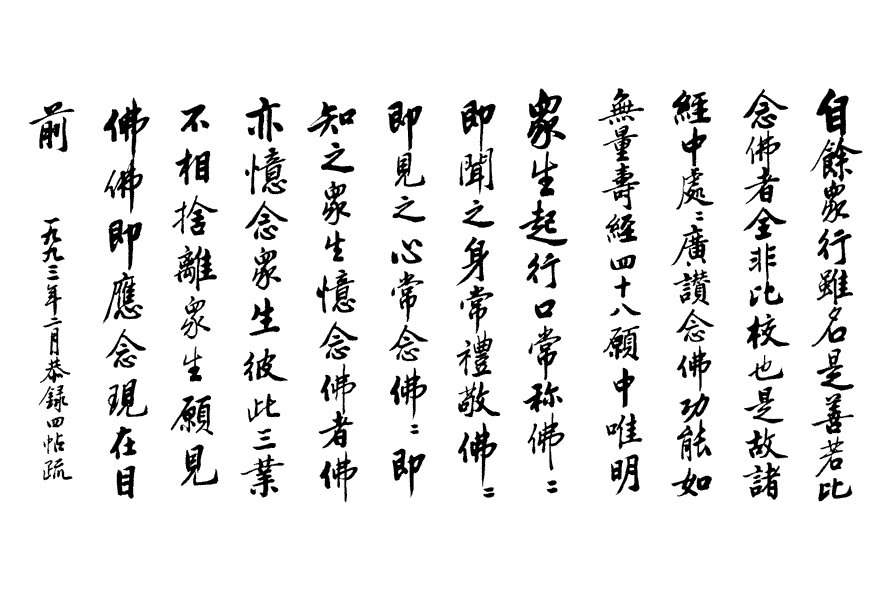 自餘眾行雖名是善若比
念佛者全非比校也是故諸
經中處〻廣讚念佛功能如
無量壽經四十八願中唯明
眾生起行口常称佛〻
即聞之身常禮敬佛〻
即見之心常念佛〻即
知之眾生憶念佛者佛
亦憶念眾生彼此三業
不相捨離眾生願見
佛佛即應念現在目
前
一九九三年二月恭録四帖疏